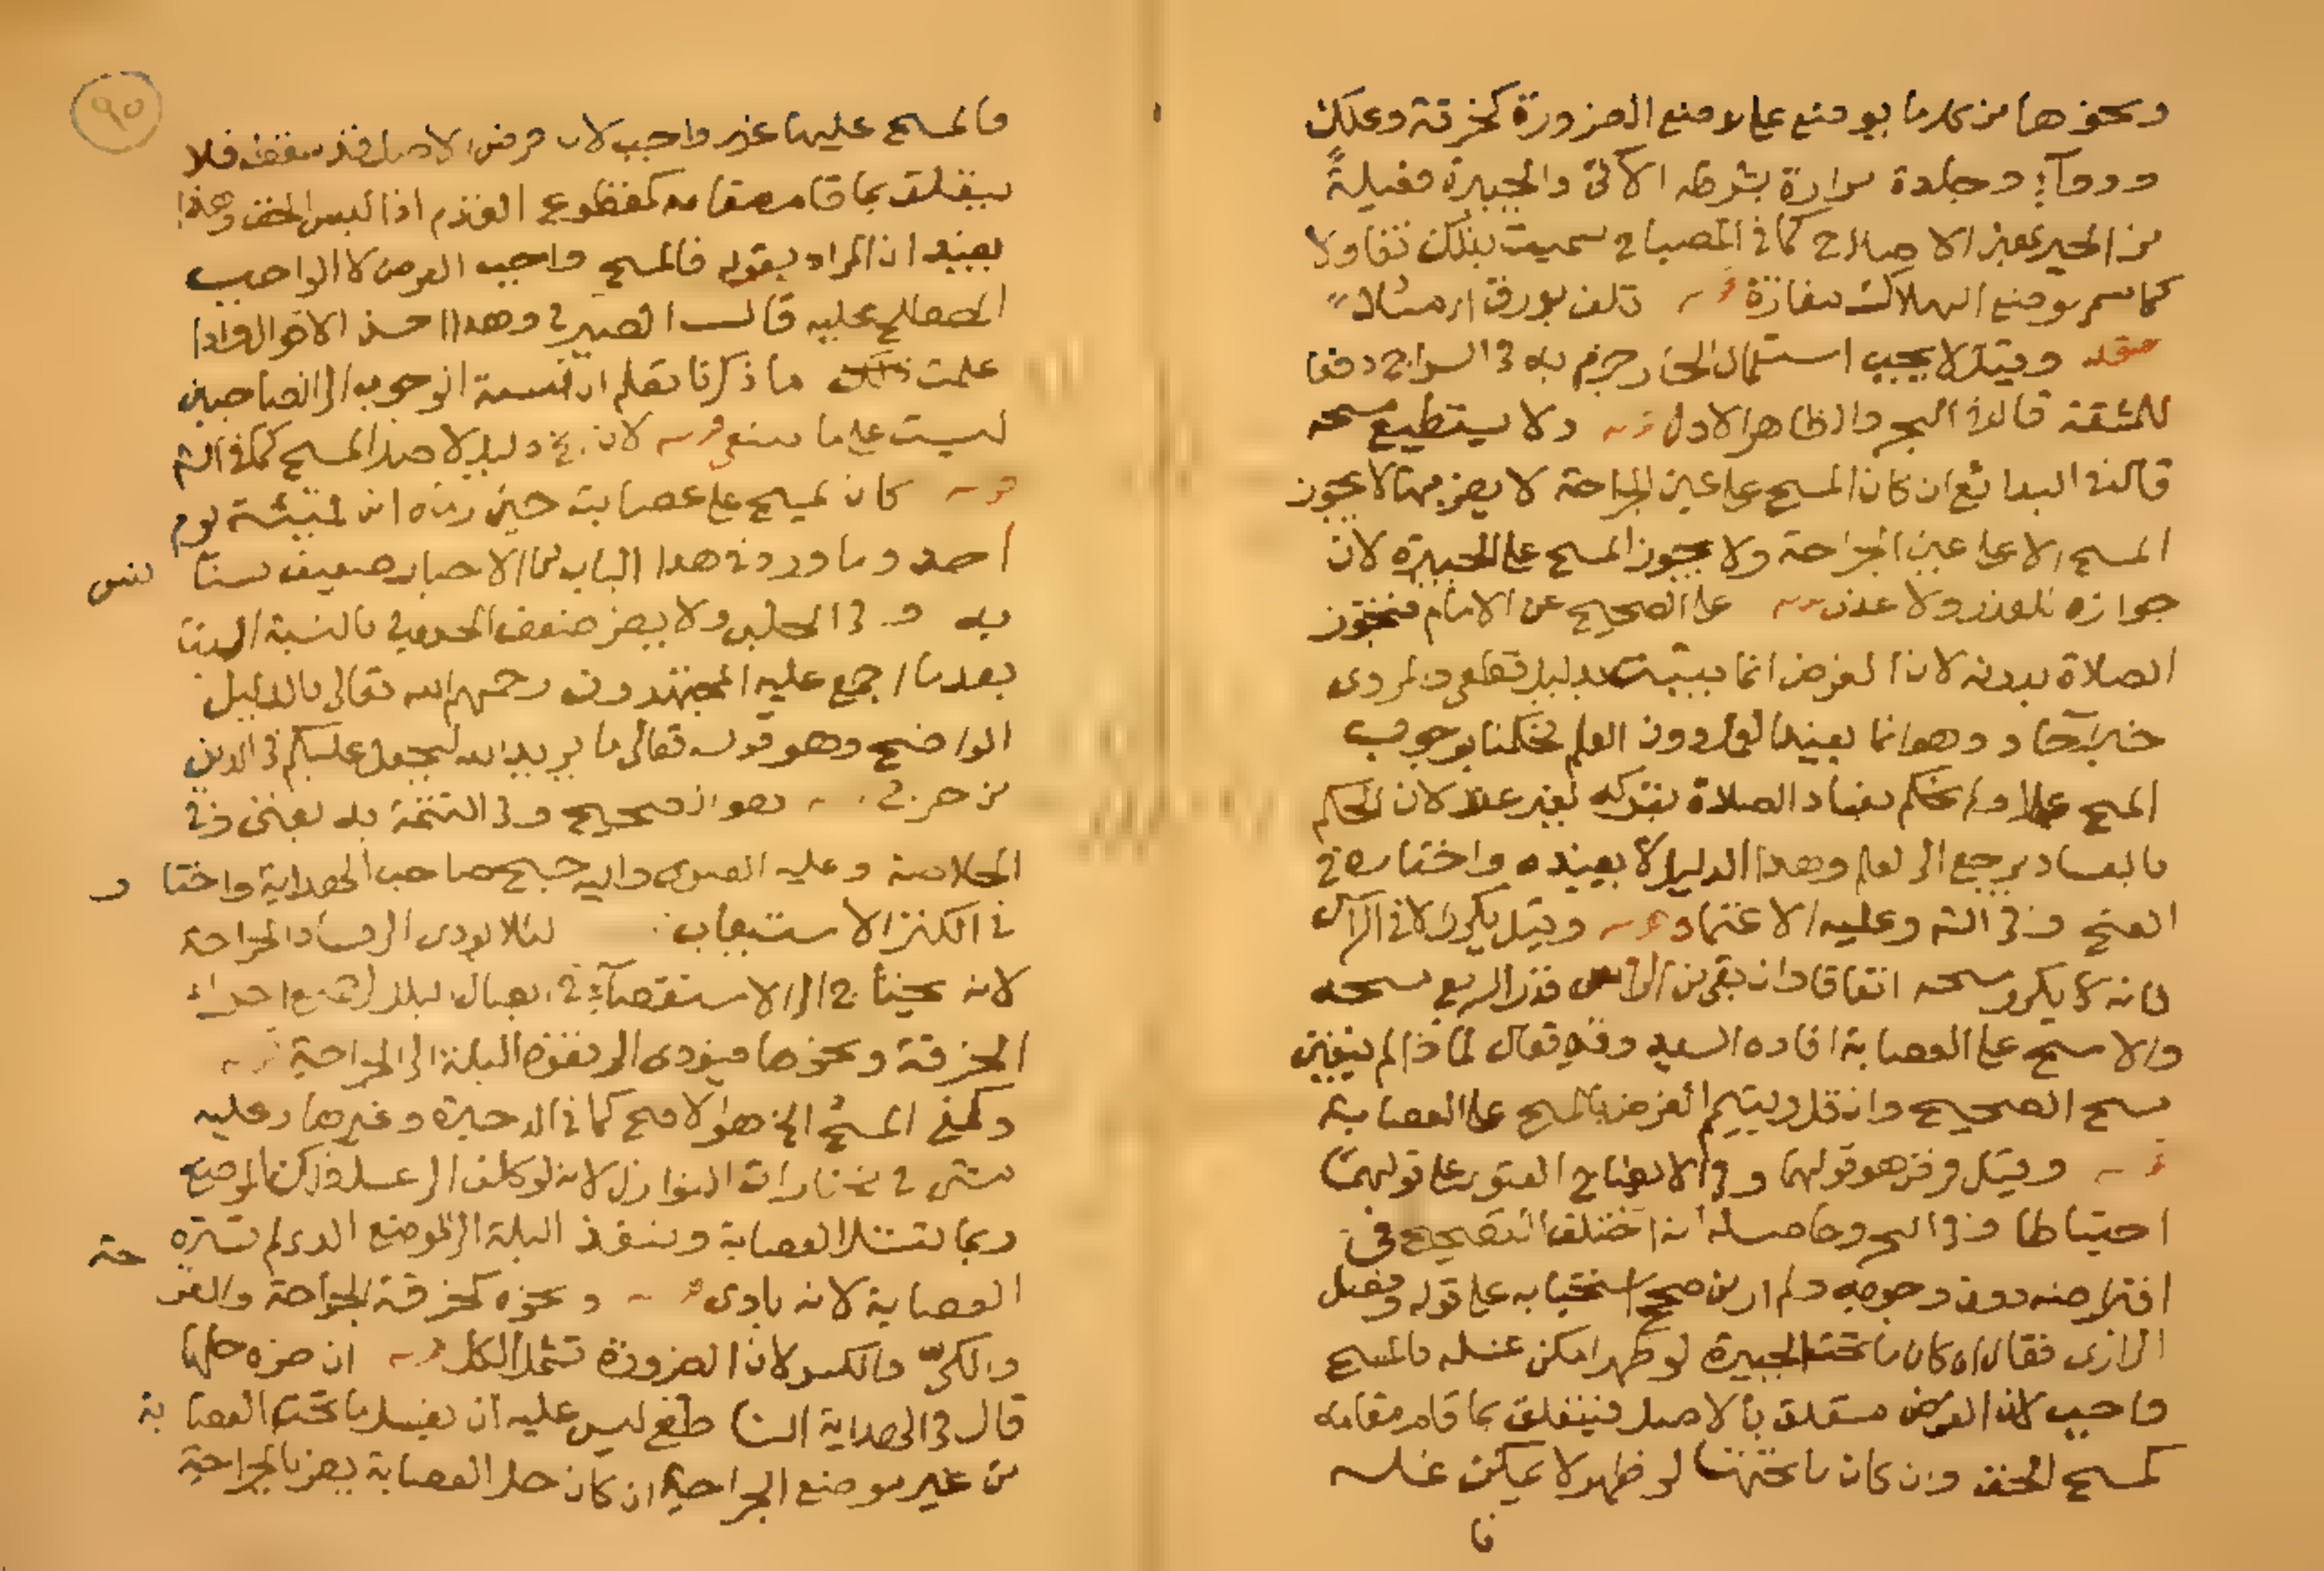 ونحوها من كل ما يوضع على موضع الضرورة كخرقة وعلك
ودواء وجلدة مرارة بشرطه الآتي والجبيرة فعيلة
من الجبر بمعنى الاصلاح كما في المصباح سميت بذلك تفاولا
كما سمى موضع الهلاك مفازة تلف بورق ارسالا
وقيل لا يجب استعمال الحار جزم به في السراج دفعا
للمشقة قال في البحر والظاهر الاول ولا يستطيع مسحه
قال في البدائع ان كان المسح على عين الجراحة لا يضر بها لا يجوز
المسح الا على عين الجراحة ولا يجوز المسح على الجبيرة لان
جوازه للعذر ولا عذر على الصحيح عن الامام فتجوز
الصلاة بدونه لان الفرض انما يثبت بدليل قطعي والمروى
خبر آحاد وهو انما يفيد العمل دون العلم فحكمنا بوجوب
المسح عملا ولم نحكم بفساد الصلاة بتركه لان الحكم
بالفساد يرجع الى العلم وهذا الدليل لا يفيده واختاره في
الفتح وفي وعليه الاعتماد وقيل يكرر الا في الراس
فانه لا يكرر مسحه اتفاقا وان بقى من الراس قدر الربع مسحه
والا مسح على العصابة افاده السيد وقد يقال لماذا لم يتعين
مسح الصحيح وان قل ويتمم الفرض بالمسح على العصابة
وقيل فرض هو قولهما وفي الايضاح الفتوى على قولهما
احتياطا وفي البحر وحاصله انه اختلف التصحيح في
افتراضه دون وجوبه ولم ار من صحح استحبابه على قوله وفصل
الرازى فقال ان كان ما تحت الجبيرة لو ظهر امكن غسله فالمسح
واجب لان الفرض متعلق بالاصل فيتعلق بما قام مقامه
كمسح الخف وان كان ما تحتها لو ظهر لا يمكن غسله
فا
٩٥
فالمسح عليها غير واجب لان فرض الاصل قد سقط فلا
يتعلق بما قام مقامه كمقطوع القدم اذا لبس الخف وهذا
يفيد ان المراد بقوله فالمسح واجب الفرض لا الواجب
المصطلح عليه قال الصيرفي وهذا احسن الاقوال واذا
علمت ما ذكرنا تعلم ان نسبة الوجوب الى الصاحبين
ليست على ما ينبغي لان دليل لاصل المسح كما في
كان يمسح على عصابته حين رماه ابن قمئة يوم
احد وما ورد في هذا الباب من الاخبار ضعيف
به وفي الحلبي ولا يضر ضعف الحديث بالنسبة الينا
بعد ما اجمع عليه المجتهدون رحمهم الله تعالى بالدليل
الواضح وهو قوله تعالى ما يريد الله ليجعل عليكم في الدين
من حرج هو الصحيح وفي التتمة به يفتى وفي
الخلاصة وعليه الفتوى واليه جنح صاحب الهداية واختا ر
في الكنز الاستيعاب لئلا يودى الى فساد الجراحة
لانه يحتاج الى الاستقصاء في ايصال البلل الى جميع اجزاء
الخرقة ونحوها فيؤدى الى نفوذ البلة الى الجراحة
وكفى المسح الخ هو الاصح كما في الذخيرة وغيرها وعليه
مشى في مختارات النوازل لانه لو كلف الى غسل ذلك الموضع
ربما تبتل العصابة وينفذ البلة الى الموضع الذى لم تستره
العصابة لانه بادى ونحوه كخرقة الجراحة
والكى والكسر لان الضرورة تشمل الكل ان ضره حلها
قال في الهداية ليس عليه ان يغسل ما تحت العصا بة
من غير موضع الجراحة ان كان حل العصابة يضر بالجراحة